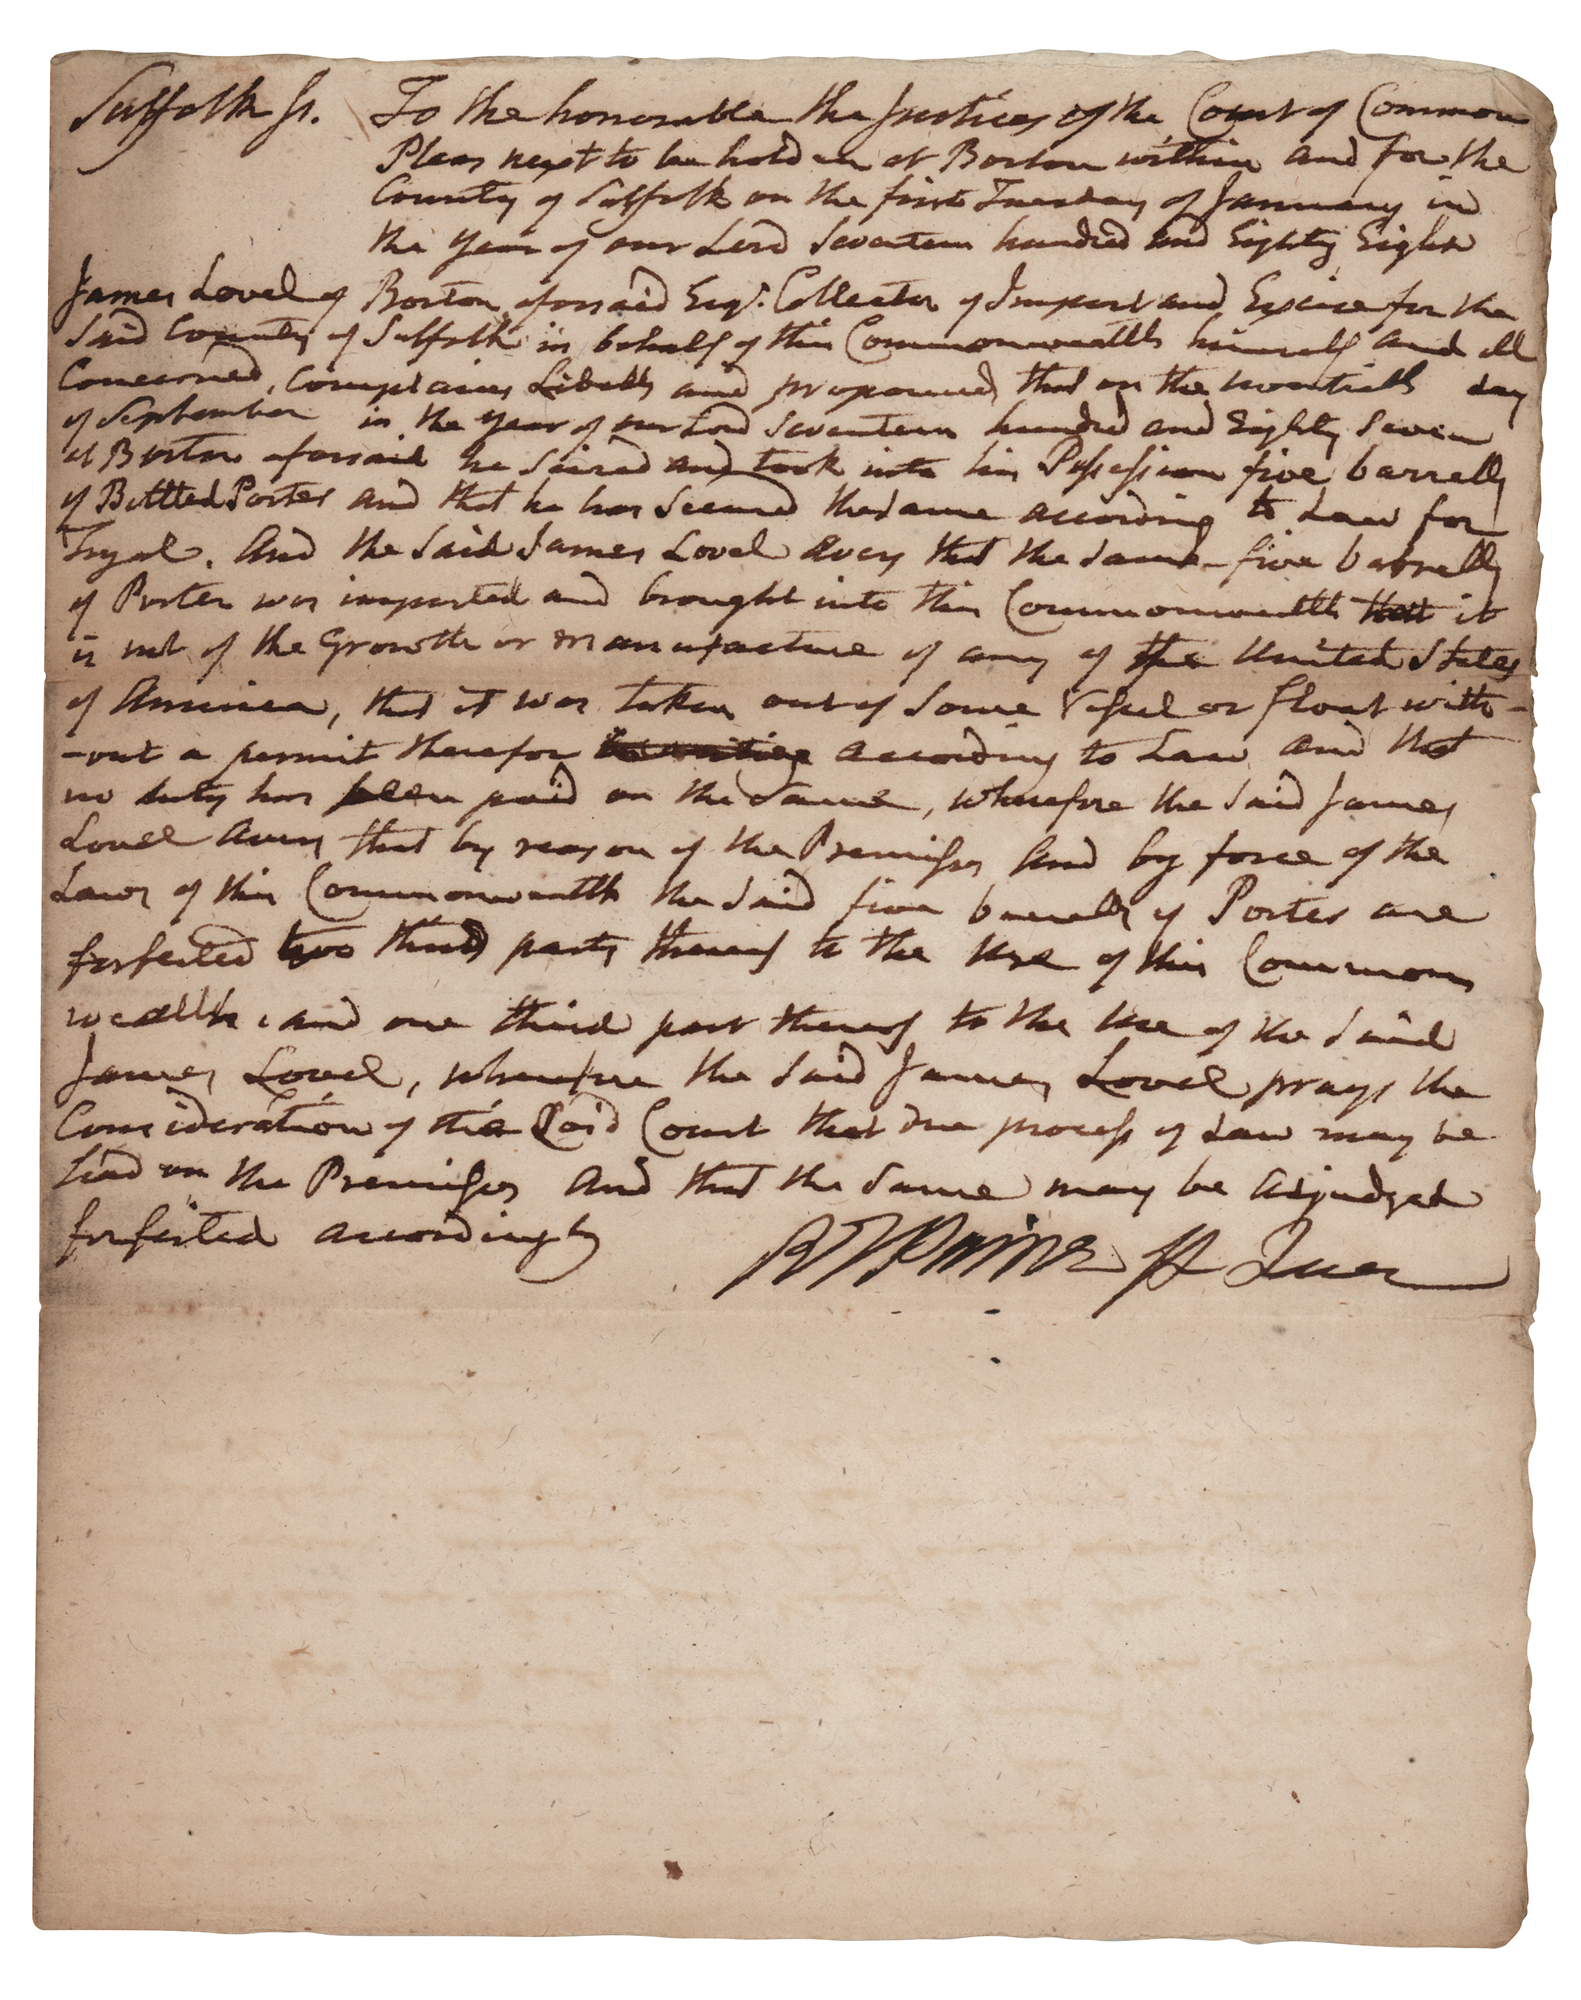 Suffolk ss. To the honorable the Justices of the Court of Common
Pleas next to be holden at Boston within and for the
County of Suffolk on the first Tuesday of January in
the year of our Lord Seventeen hundred and Eighty Eight
James Lovel of Boston aforesaid Esqr. Collector of Impost and Excise for the
Said County of Suffolk in behalf of this Commonwealth himself and all
Concerned, Complains Libells and propounds that on the twentieth day
of September in the year of our Lord Seventeen hundred and Eighty Seven
at Boston aforesaid he Seized and took into his Possession five barrells
of Bottled Porter and that he has Secured the same according to Law for
Tryal. And the Said James Lovel avers that the same five barrells
of Porter was imported and brought into this Commonwealth that it
is not of the Growth or Manufacture of any of the United States
of America, that it was taken out of Some Vessel or float with-
-out a permit therefor according to Law and that
no duty has been paid on the Same, wherefore the Said James
Lovel avers that by reason of the Premisses and by force of the
Laws of this Commonwealth the Said five barrells of Porter are
forfeited two third parts thereof to the Use of this Common
wealth and one third part thereof to the Use of the Said
James Lovel, wherefore the Said James Lovel prays the
Consideration of the Said Court that due process of Law may be
had on the Premisses and that the Same may be adjudged
forfeited accordingly
RTPaine